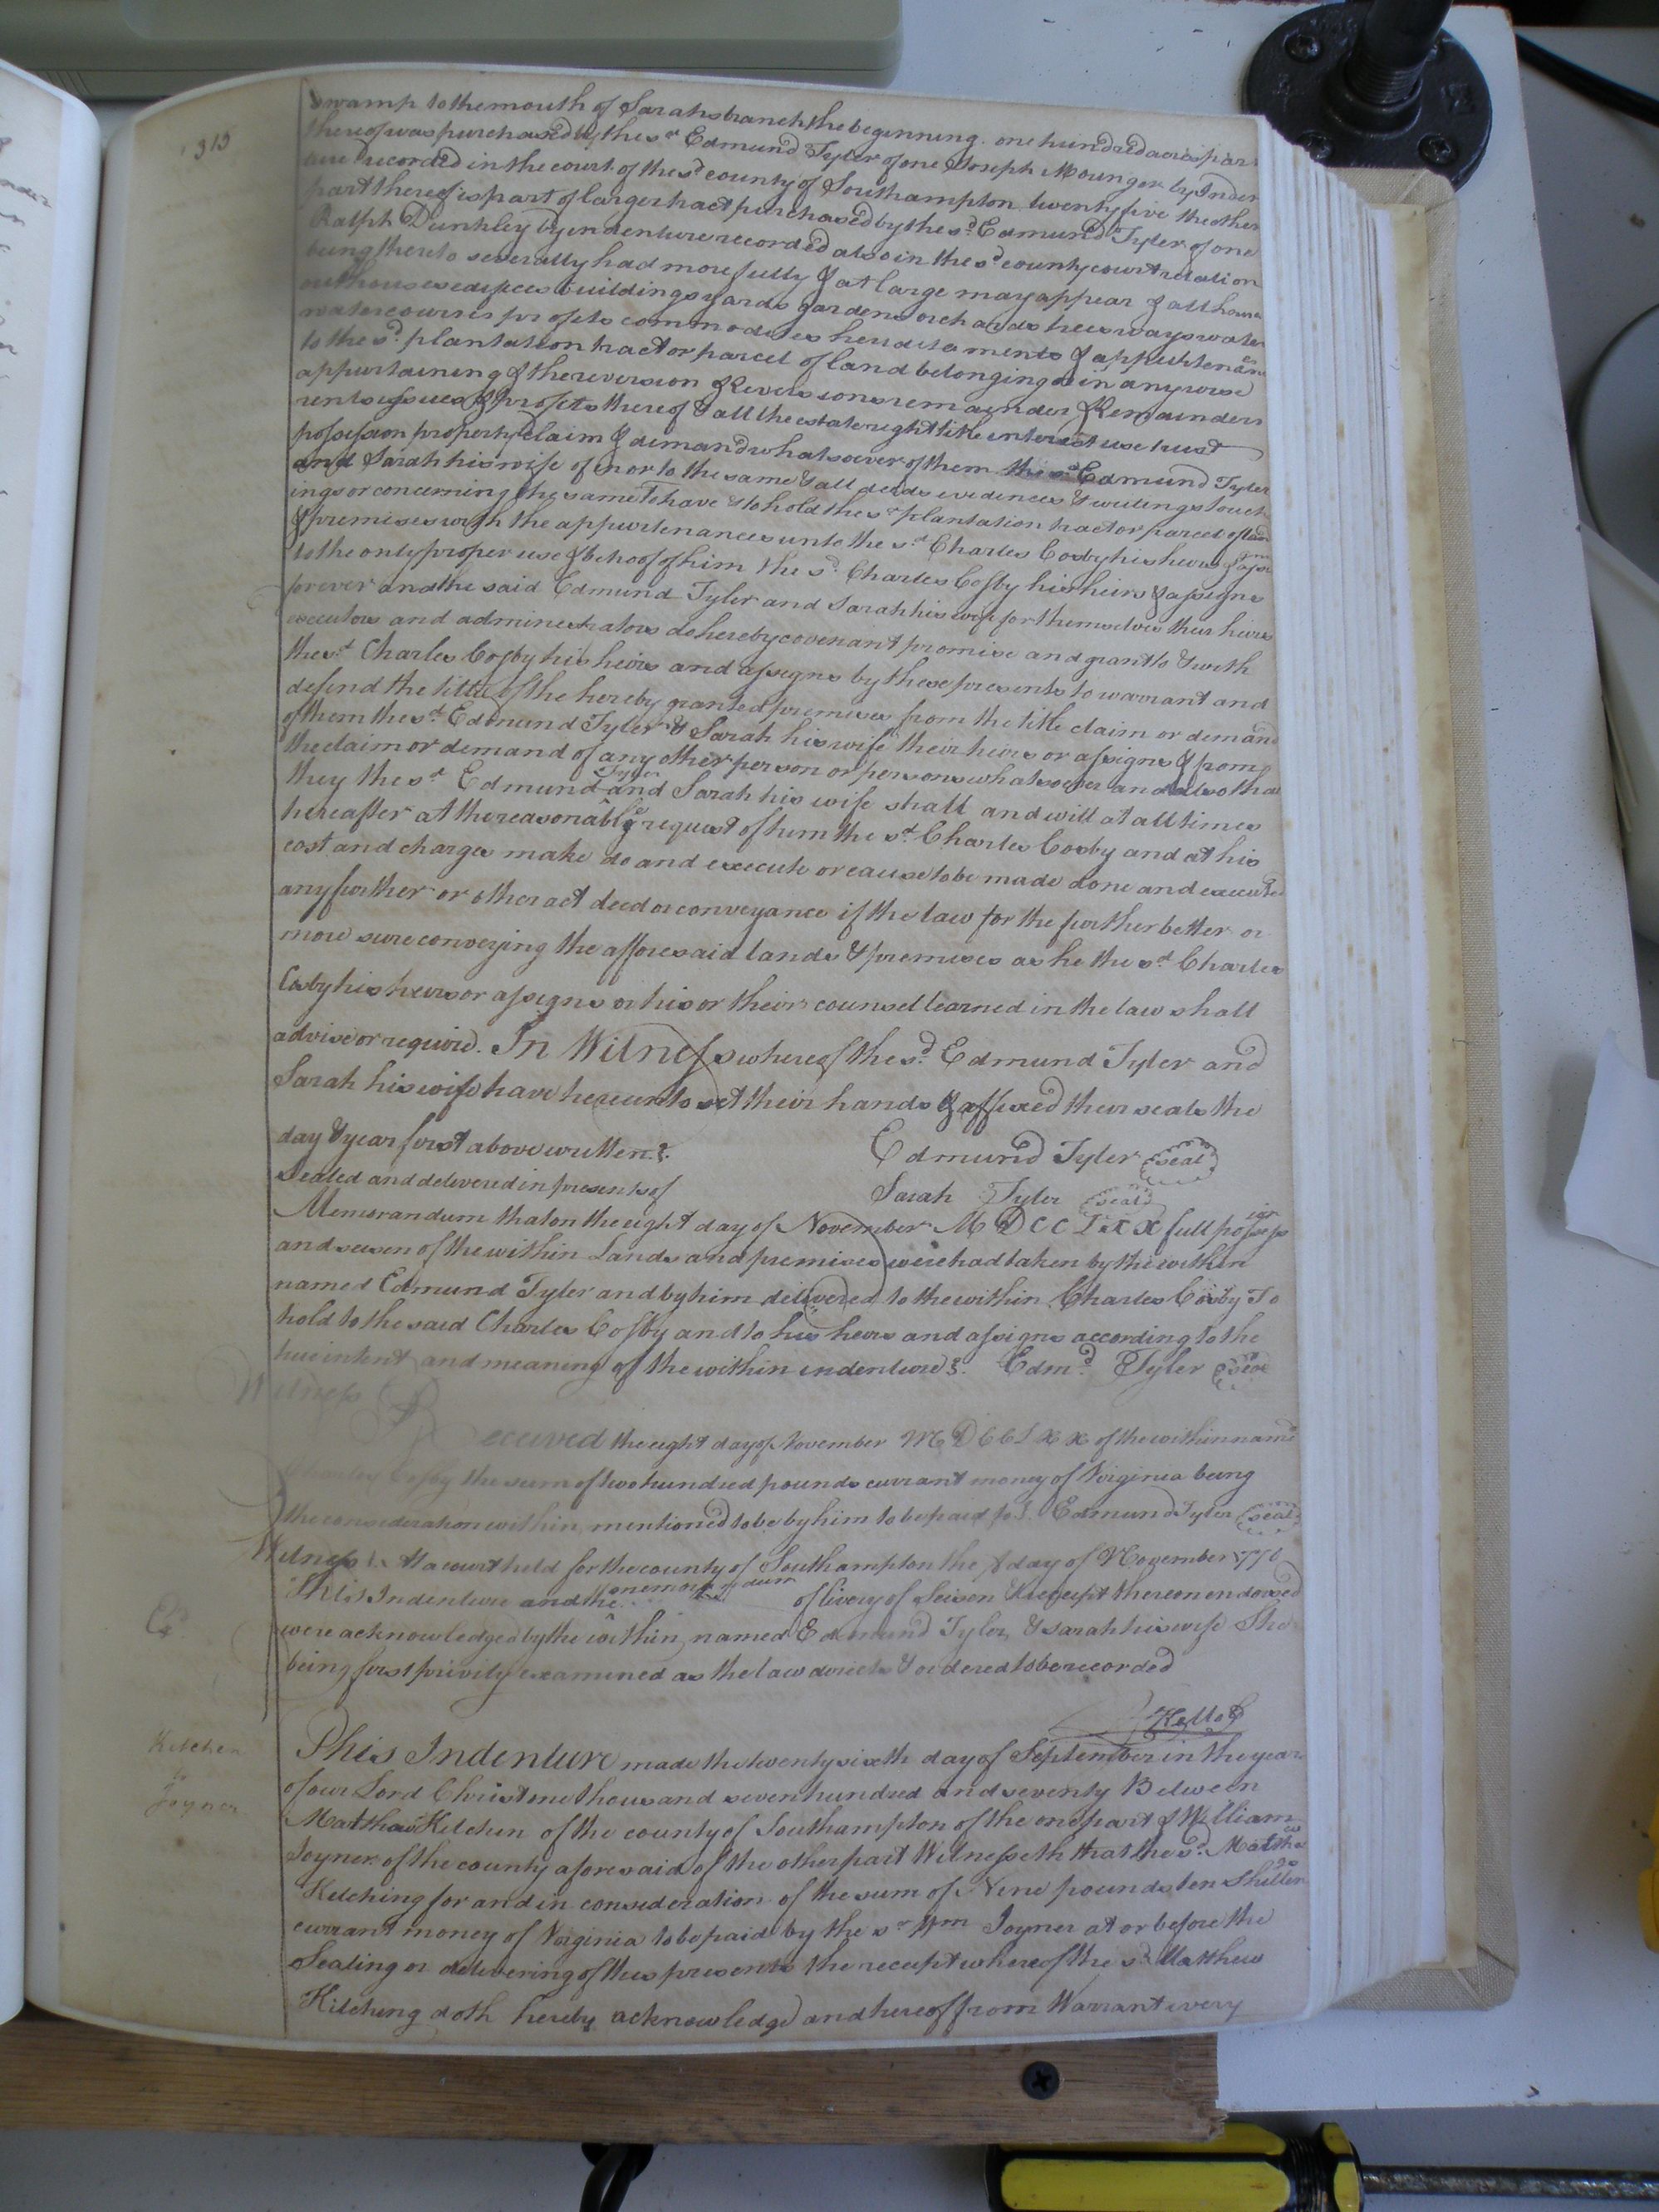 313
Swamp to the mouth of Sarahs branch the beginning. one hundred acres part
thereof was purchased by the sd Edmund Tyler of one Joseph Mounger by Inden
ture recorded in the court of the sd county of Southampton twenty five the other
part thereof is part of larger tract purchased by the sd. Edmund Tyler of one
Ralph Dunkley by indenture recorded also in the sd county court relation
being thereto severally had more fully & at large may appear & all houses
outhouses edifices buildings yards gardens orchards trees ways water
watercourses profits commodities hereditaments & appurtenan ces
to the sd. plantation tract or parcel of land belonging or in any wise
appurtaining & the reversion & Reversions remainder & Remainders
rents issues & profits thereof & all the estate right title interest use trust
possession property claim & demand whatsoever of them the sd Edmund Tyler
and Sarah his wife of in or to the same & all deeds evidences & writings touch
ing or concerning the same To have & to hold the sd plantation tract or parcel of land
& premises with the appurtenances unto the sd Charles Cosby his heirs & assigns
to the only proper use & behoof of him the sd. Charles Cosby his heirs & assigns
forever and the said Edmund Tyler and Sarah his wife for themselves their heirs
executors and administrators do hereby covenant promise and grant to & with
the sd. Charles Cosby his heirs and assigns by these presents to warrant and
defend the title of the hereby granted premises from the title claim or demand
of them the sd. Edmund Tyler & Sarah his wife their heirs or assigns & from
the claim or demand of any other person or persons whatsoever and also that
they the sd Edmund Tyler and Sarah his wife shall and will at all times
hereafter at the reasonable request of him the sd. Charles Cosby and at his
cost and charges make do and execute or cause to be made done and executed
any further or other act deed or conveyance if the law for the further better or
more sure conveying the afforesaid lands & premises as he the sd Charles
Cosby his heirs or assigns or his or their counsel learned in the law shall
advise or require. In Witness whereof the sd. Edmund Tyler and
Sarah his wife have hereunto set their hands & affixed their seals the
day & year first above written.
Edmund Tyler seal
Sealed and delivered in presents of
Sarah Tyler seal
Memorandum that on the eight day of November MDCCLXX full possession
and seisen of the within Lands and premises were had taken by the within
named Edmund Tyler and by him delivered to the within Charles Cosby To
hold to the said Charles Cosby and to his heirs and assigns according to the
true intent and meaning of the within indenture. Edmd. Tyler seal
Witness
Received the eight day of November MDCCLXX of the within named
Charles Cosby the sum of two hundred pounds currant money of Virginia being
the consideration within mentioned to be by him to be paid p. Edmund Tyler seal
Witness At a court held for the county of Southampton the 8 day of November 1770
This Indenture and the memorandum of livery of Seisen & receipt thereon endorsed
were acknowledged by the within named Edmund Tyler & Sarah his wife She
being first privily examined as the law directs & ordered to be recorded
Exd
Kello
Kitchen
to
Joyner
This Indenture made the twenty sixth day of September in the year
of our Lord Christ one thousand seven hundred and seventy Between
Matthew Kitchen of the county of Southampton of the one part & William
Joyner of the county aforesaid of the other part Witnesseth that the sd. Matthew
Kitching for and in consideration of the sum of Nine pounds ten Shillings
currant money of Virginia to be paid by the sd Wm Joyner at or before the
Sealing or delivering of thes presents the receipt whereof the sd. Matthew
Kitching doth hereby acknowledge and hereof from Warrant every